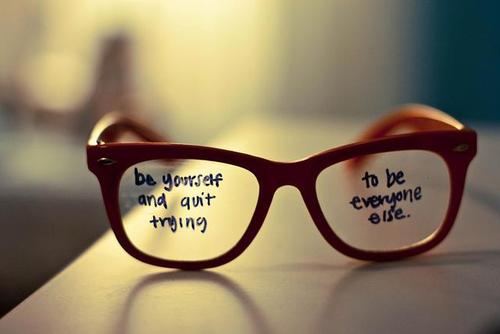 be yourself
and quit
trying
to be
everyone
else.